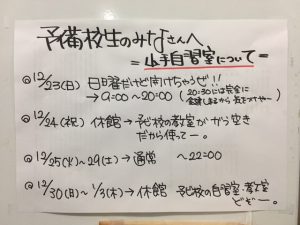 予備校生のみなさんへ
=山手自習室について=
◎12/23(日) 日曜だけど開けちゃうぜ!!
→9:00〜20:00 (20:30には完全に
◎12/24(祝) 休館→予び校の教室がガラ空き
だから使ってー。
◎12/25(火)〜29(土)→通常 〜22:00
◎12/30(日)〜1/3(木)→休館 予び校の自習室・教室
どぞー。